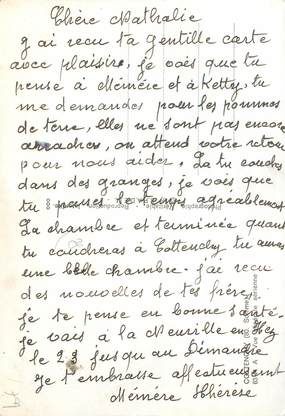 Chère Nathalie
j'ai recu ta gentille carte
avec plaisir, je vois que tu
pense à Mémère et à Ketty, tu
me demandes pour les pommes
de terre, elles ne sont pas encore
arraches, on attend votre retour
pour nous aider. La tu couches
dans des granges, je vois que
tu passes le temps agreablement
La chambre et terminée quand
tu coucheras à tu auras
une belle chambre. j'ai recu
des nouvelles de tes frère,
je te pense en bonne santé.
je vais à la Neuville en Hez
le 23 jusqu'au Dimanche
Je t'embrasse affectueusement
Mémère Thérèse